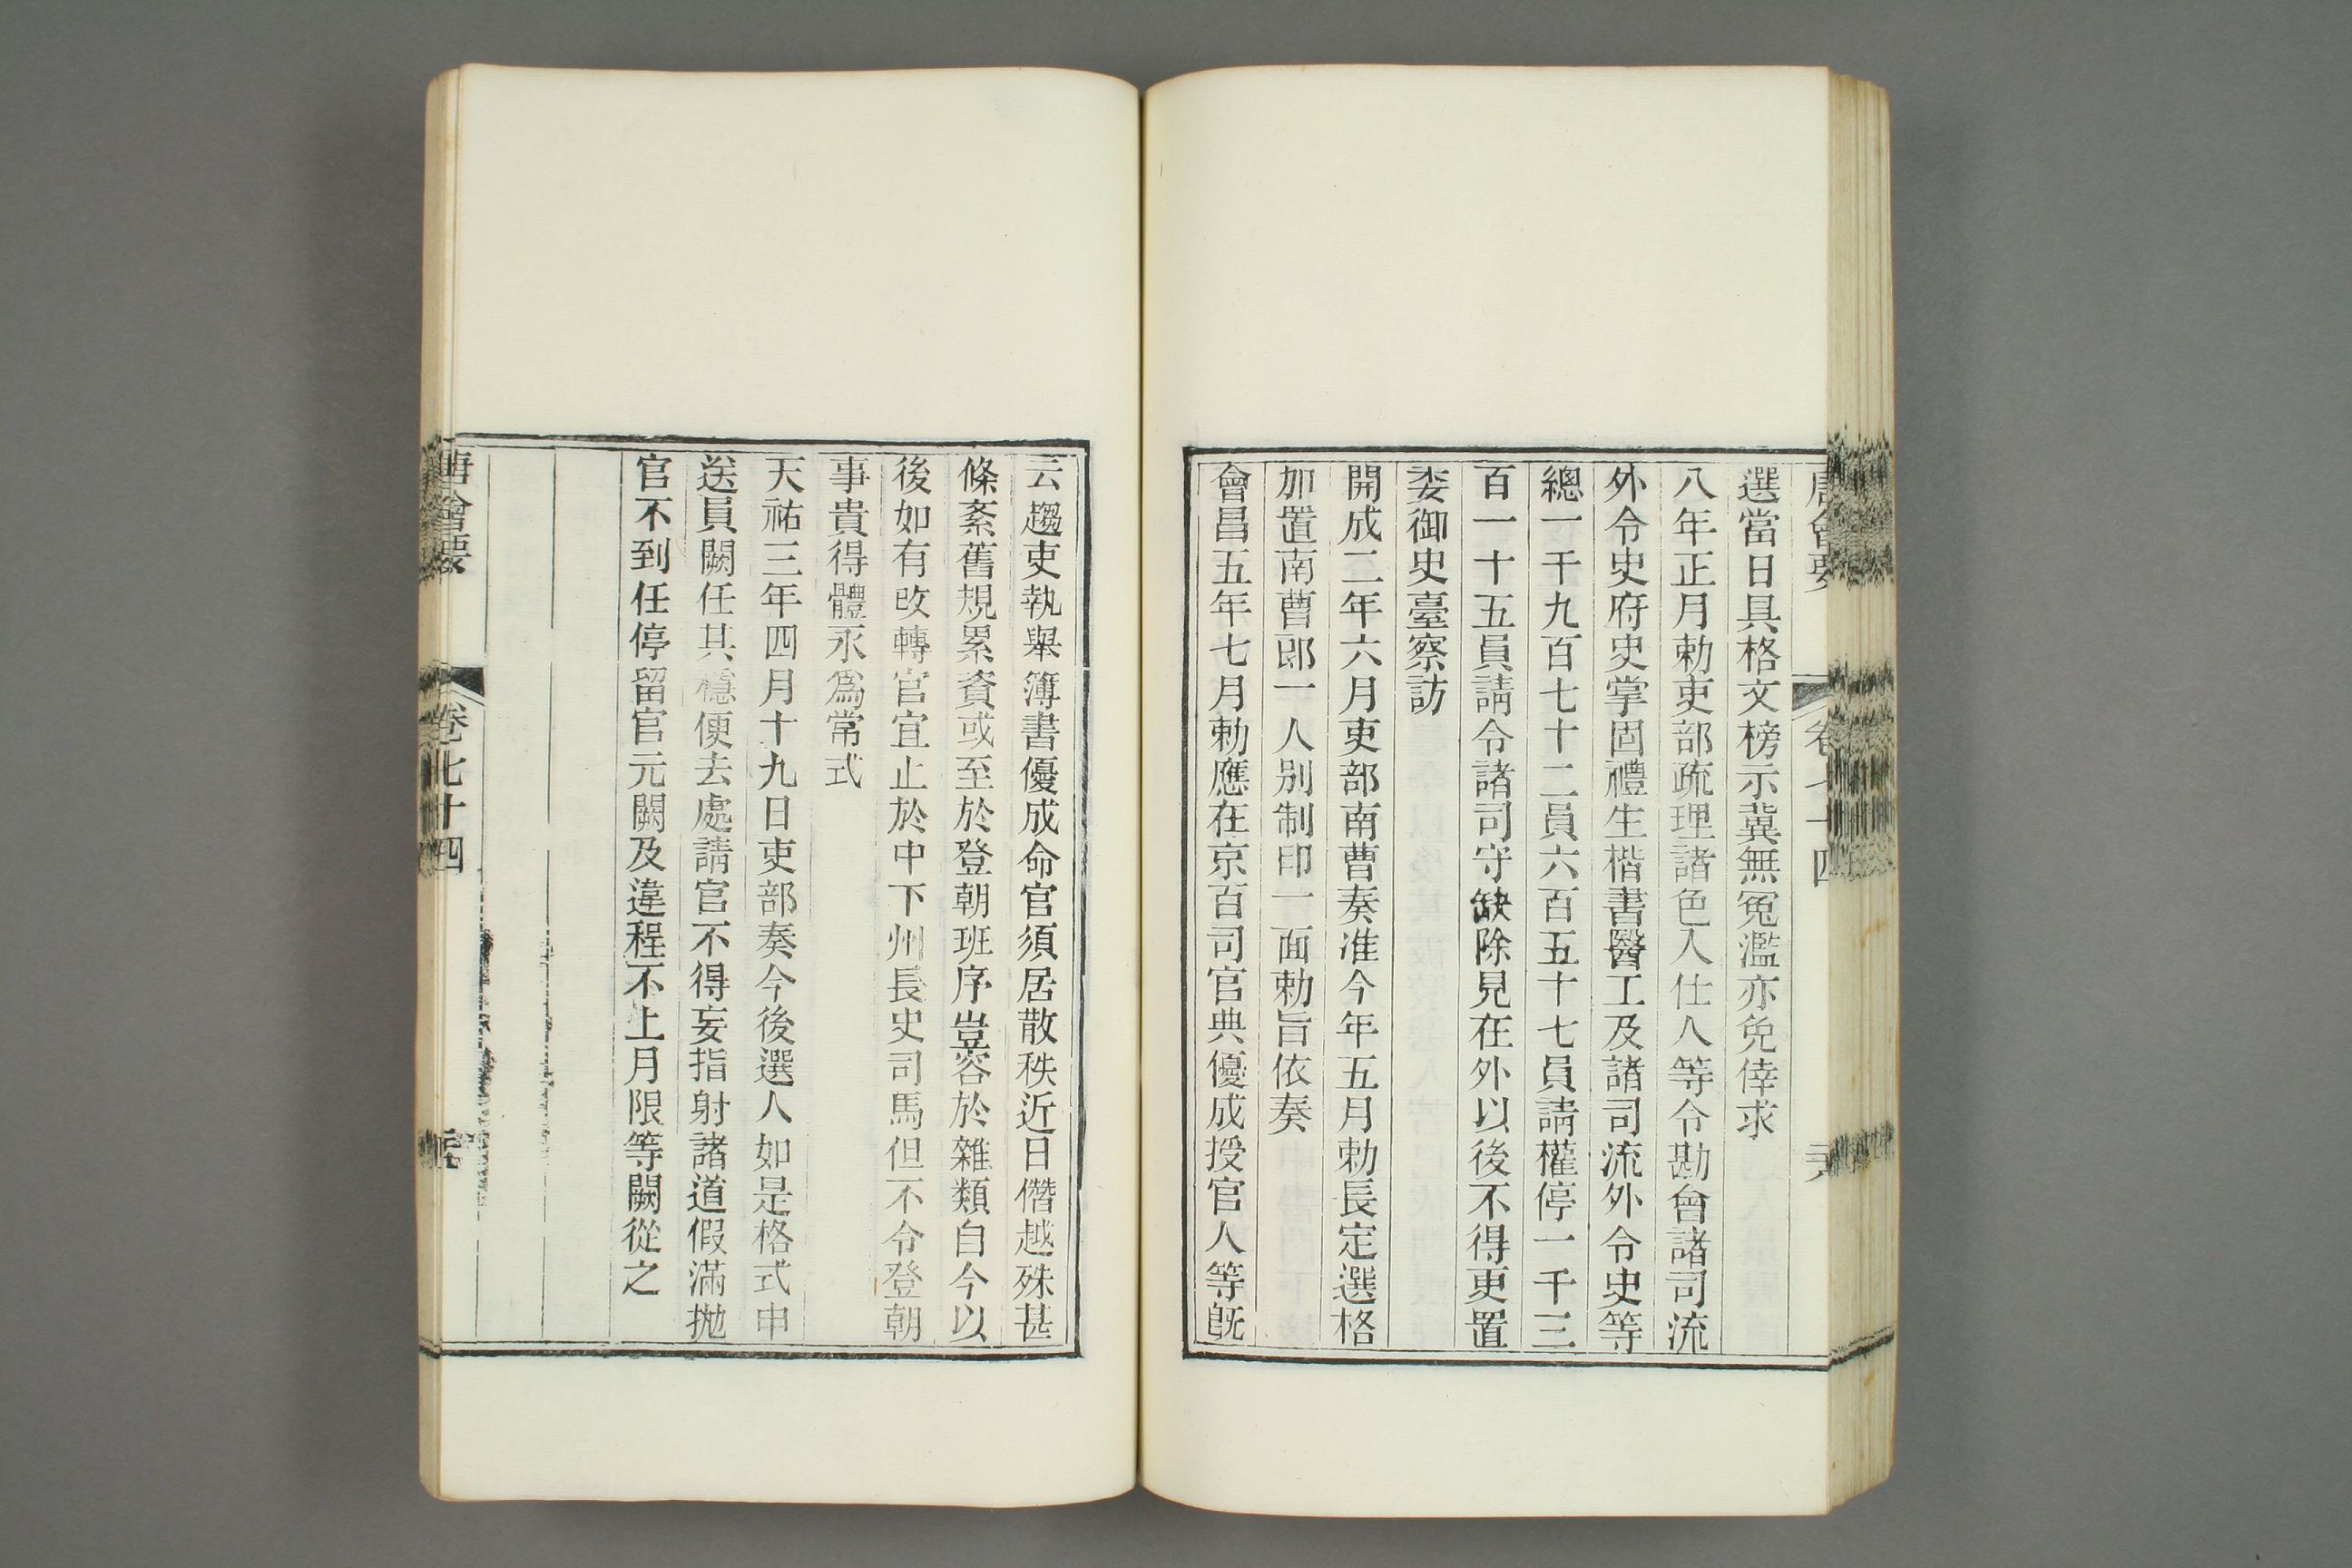 選當日具格文榜示冀無冤濫亦免倖求
八年正月勅吏部疏理諸色人仕人等令勘會諸司流
外令史府史掌固禮生楷書醫工及諸司流外令史等
總一千九百七十二員六百五十七員請權停一千三
百一十五員請令諸司守缺除見在外以後不得更置
委御史臺察訪
開成二年六月吏部南曹奏准今年五月勅長定選格
加置南曹郎一人別制印一面勅旨依奏
會昌五年七月勅應在京百司官典優成授官人等旣
云趨吏執舉簿書優成命官須居散秩近日僭越殊甚
條紊舊規累資或至於登朝班序豈容於雜類自今以
後如有改轉官宜止於中下州長史司馬但不令登朝
事貴得體永爲常式
天祐三年四月十九日吏部奏今後選人如是格式申
送員闕任其穩便去處請官不得妄指射諸道假滿拋
官不到任停留官元闕及違程不上月限等闕從之
唐會要 卷七十四